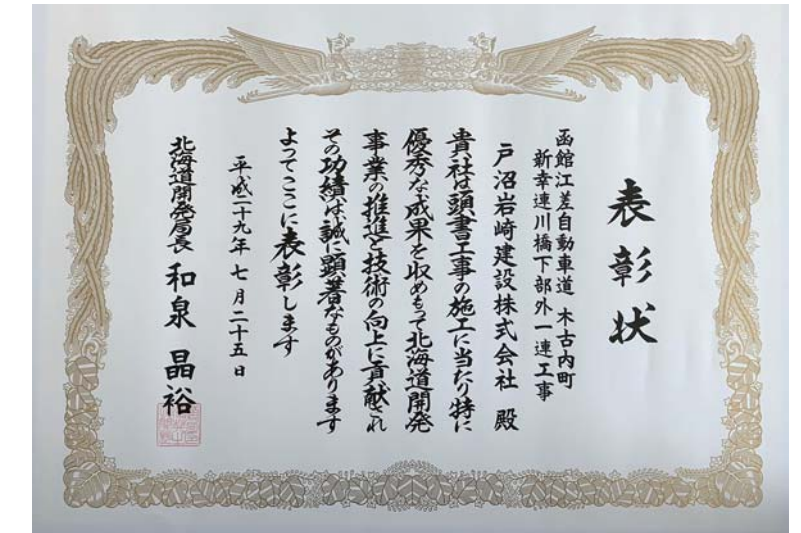 表彰状
函館江差自動車道 木古内町
新幸連川橋下部外一連工事
戸沼岩崎建設株式会社 殿
貴社は頭書工事の施工に当たり特に
優秀な成果を収めもって北海道開発
事業の推進と技術の向上に貢献され
その功績は誠に顕著なものがあります
よってここに表彰します
平成二十九年七月二十五日
北海道開発局長 和泉 晶裕